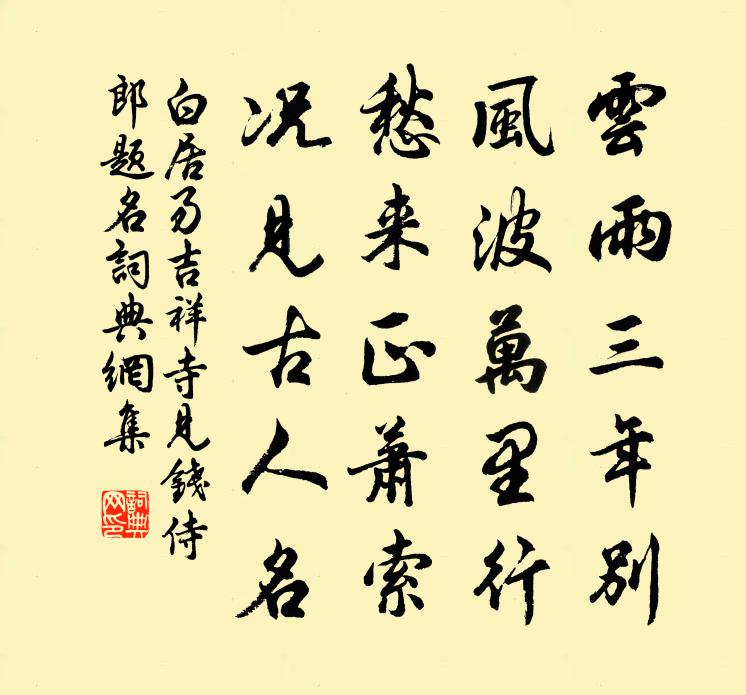 雲雨三年別
風波萬里行
愁来正蕭索
況見古人名
白居易吉祥寺見錢侍
郎題名詞典網集
詞典
网印